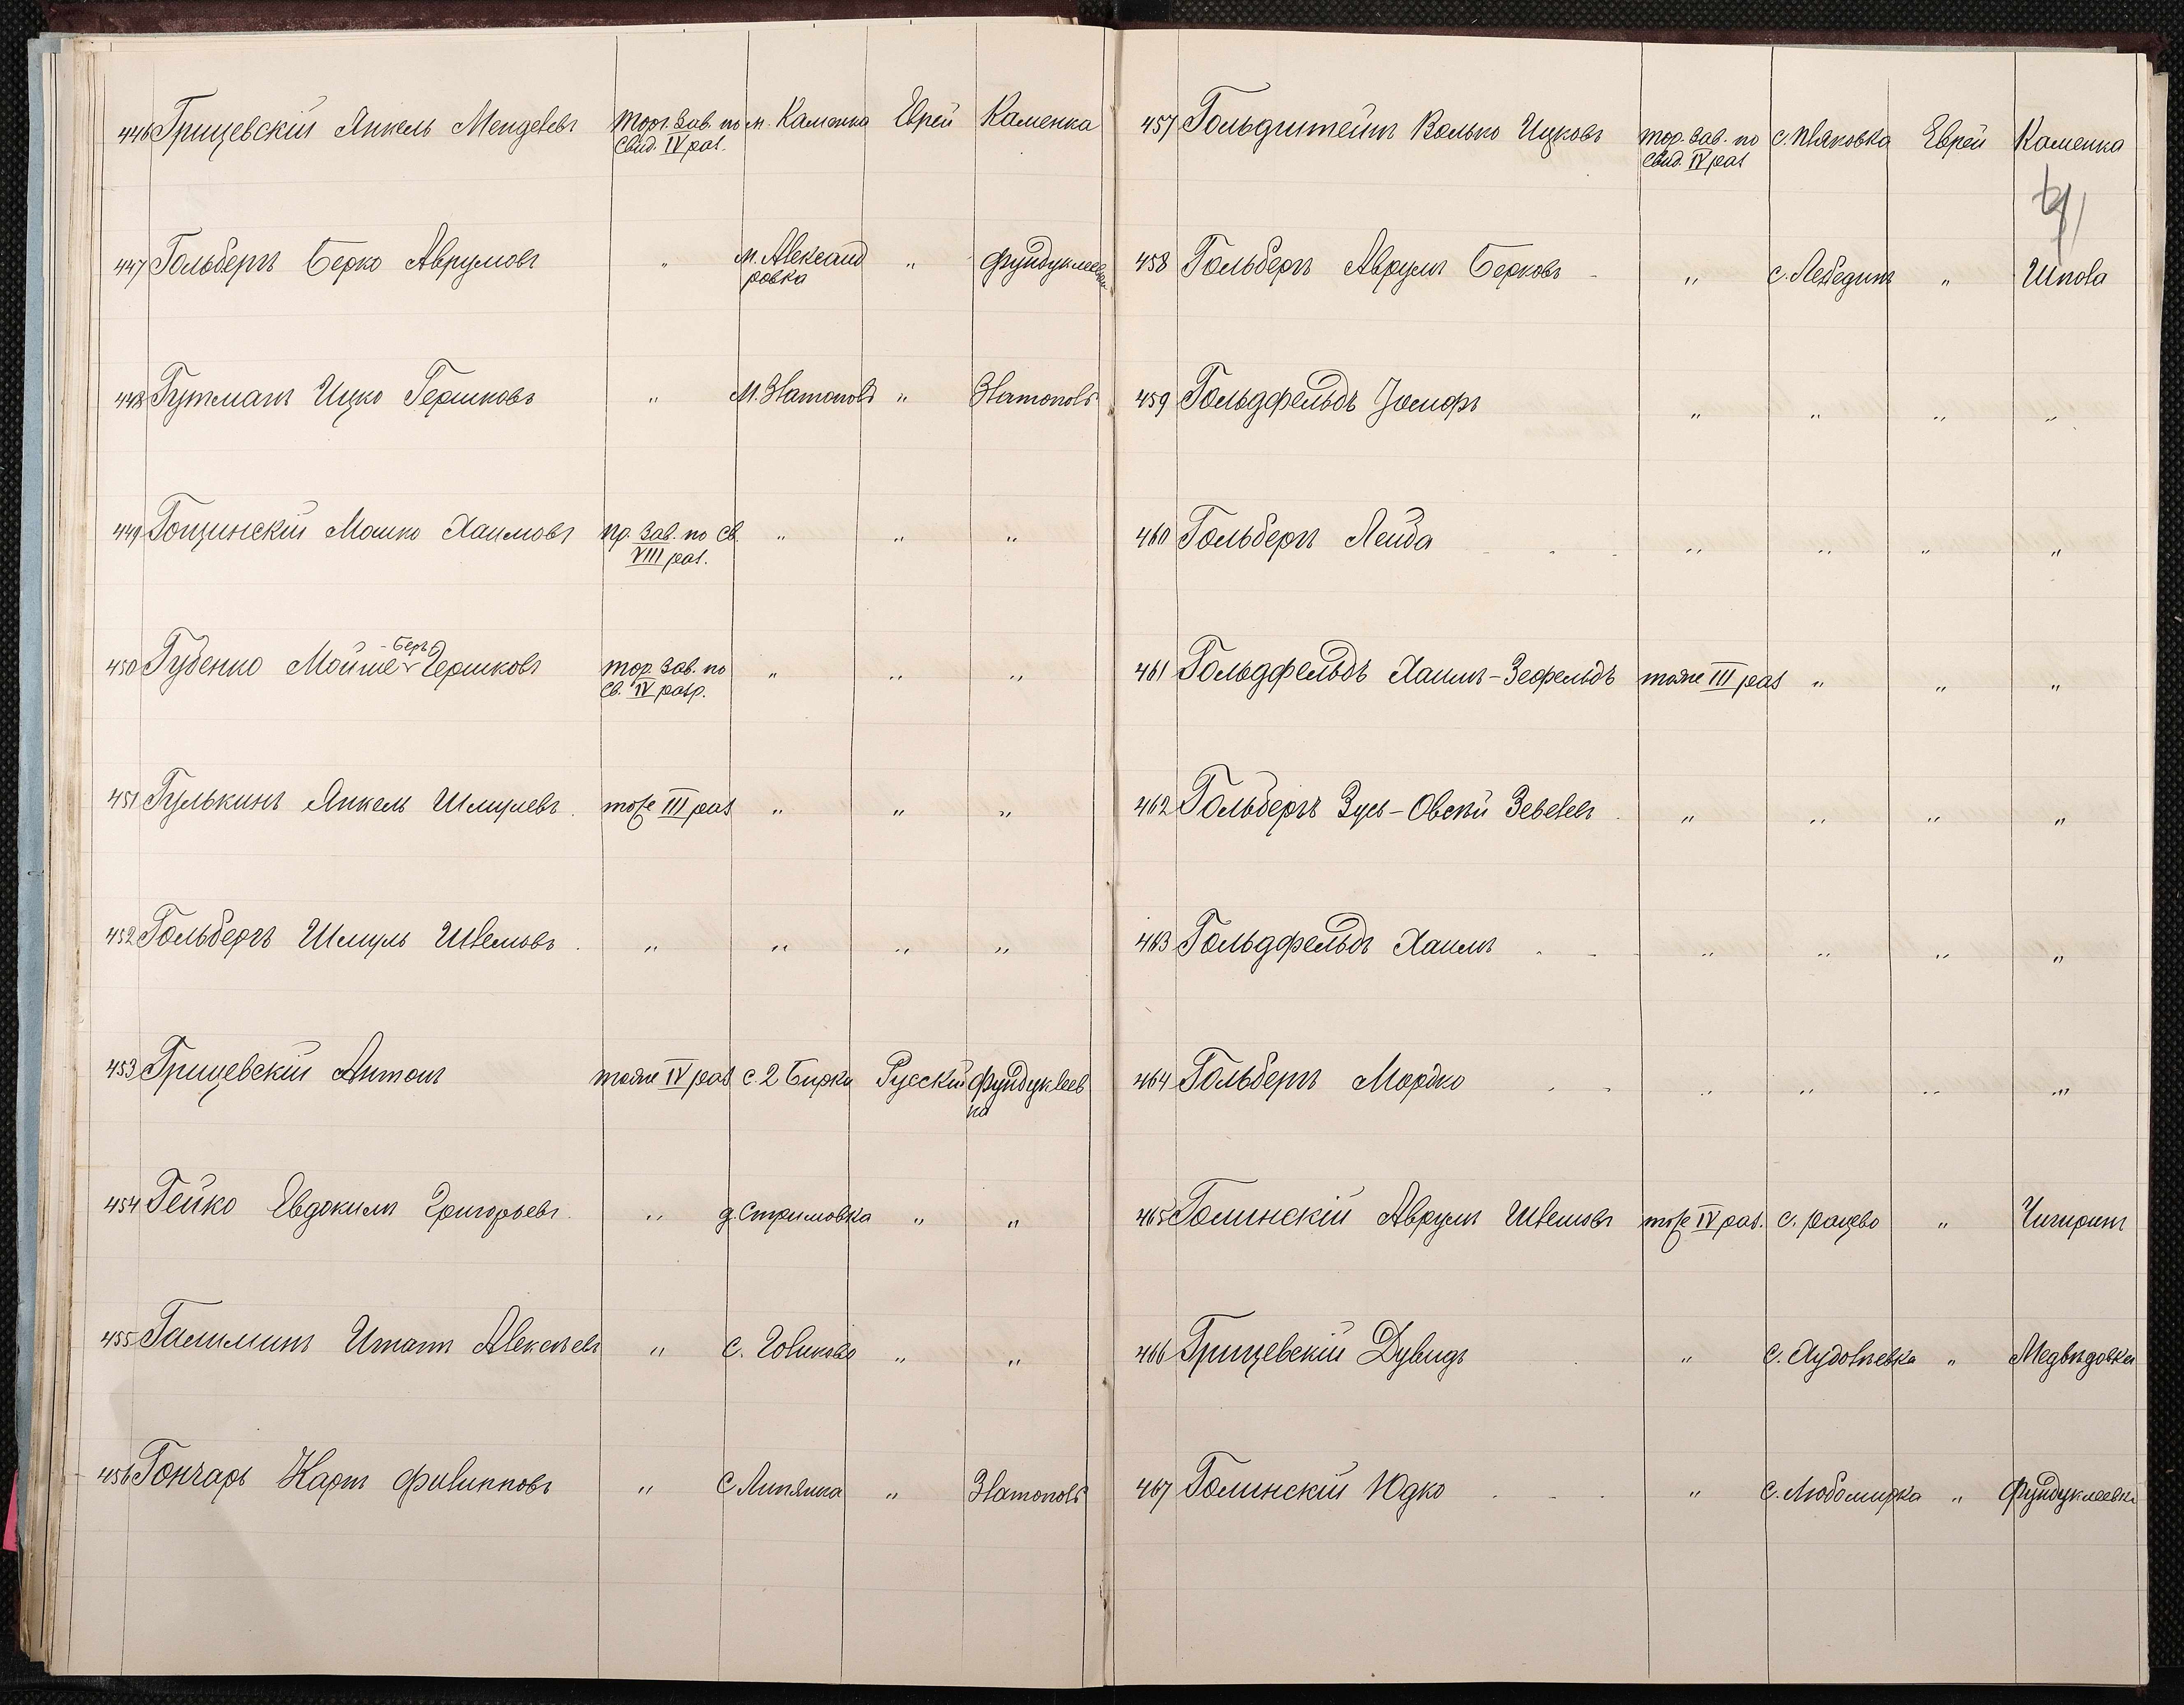 446 Грищевскiй Янкель Менделевъ Торг. зав. по м. Каменка Еврей Каменка
свид. IV раз.
447 Гольбергъ Берко Аврумовъ " м. Александ " Фундуклеевка
ровка
448 Гутманъ Ицко Гершковъ " м. Златополь " Златополь
449 Гощинскiй Мошко Хаимовъ пр. зав. по св. " " "
VIII раз.
-Беръ
450 Губенко Мойше Гершковъ тор. зав. по " " "
св. IV разр.
451 Гулькинъ Янкель Шмулевъ тоже III раз " " "
452 Гольбергъ Шмуль Шлемовъ " " " "
453 Грищевскiй Антонъ тоже IV раз с. 2 Бирки Русскiй Фундуклеев
ка
454 Гейко Евдокимъ Григорьевъ " д. Стримовка " "
455 Алексѣевъ " с. " "
456 Гончаръ Карпъ Филипповъ " с. Липянка " Златополь
457 Гольдштейнъ Волько Ицковъ тор. зав. по с. Пляковка Еврей Каменка
свид. IV раз
458 Гольбергъ Аврумъ Берковъ " с. Лебединъ " Шпола
459 Гольдфельдъ Iосифъ " " " "
460 Гольбергъ Лейба " " " "
461 Гольдфельдъ Хаимъ-Зефельдъ тоже III раз " " "
462 Гольбергъ Зусь-Овсѣй " " " "
463 Гольдфельдъ Хаимъ " " " "
464 Гольбергъ Мордко " " " "
465 Голинскiй Аврумъ Шлемовъ тоже IV раз. с. Рацево " Чигиринъ
466 Грищевскiй Дувидъ " с. Худолѣевка " Медвѣдовка
467 Голинскiй Юдко " с. Любомирка " Фундуклеевка